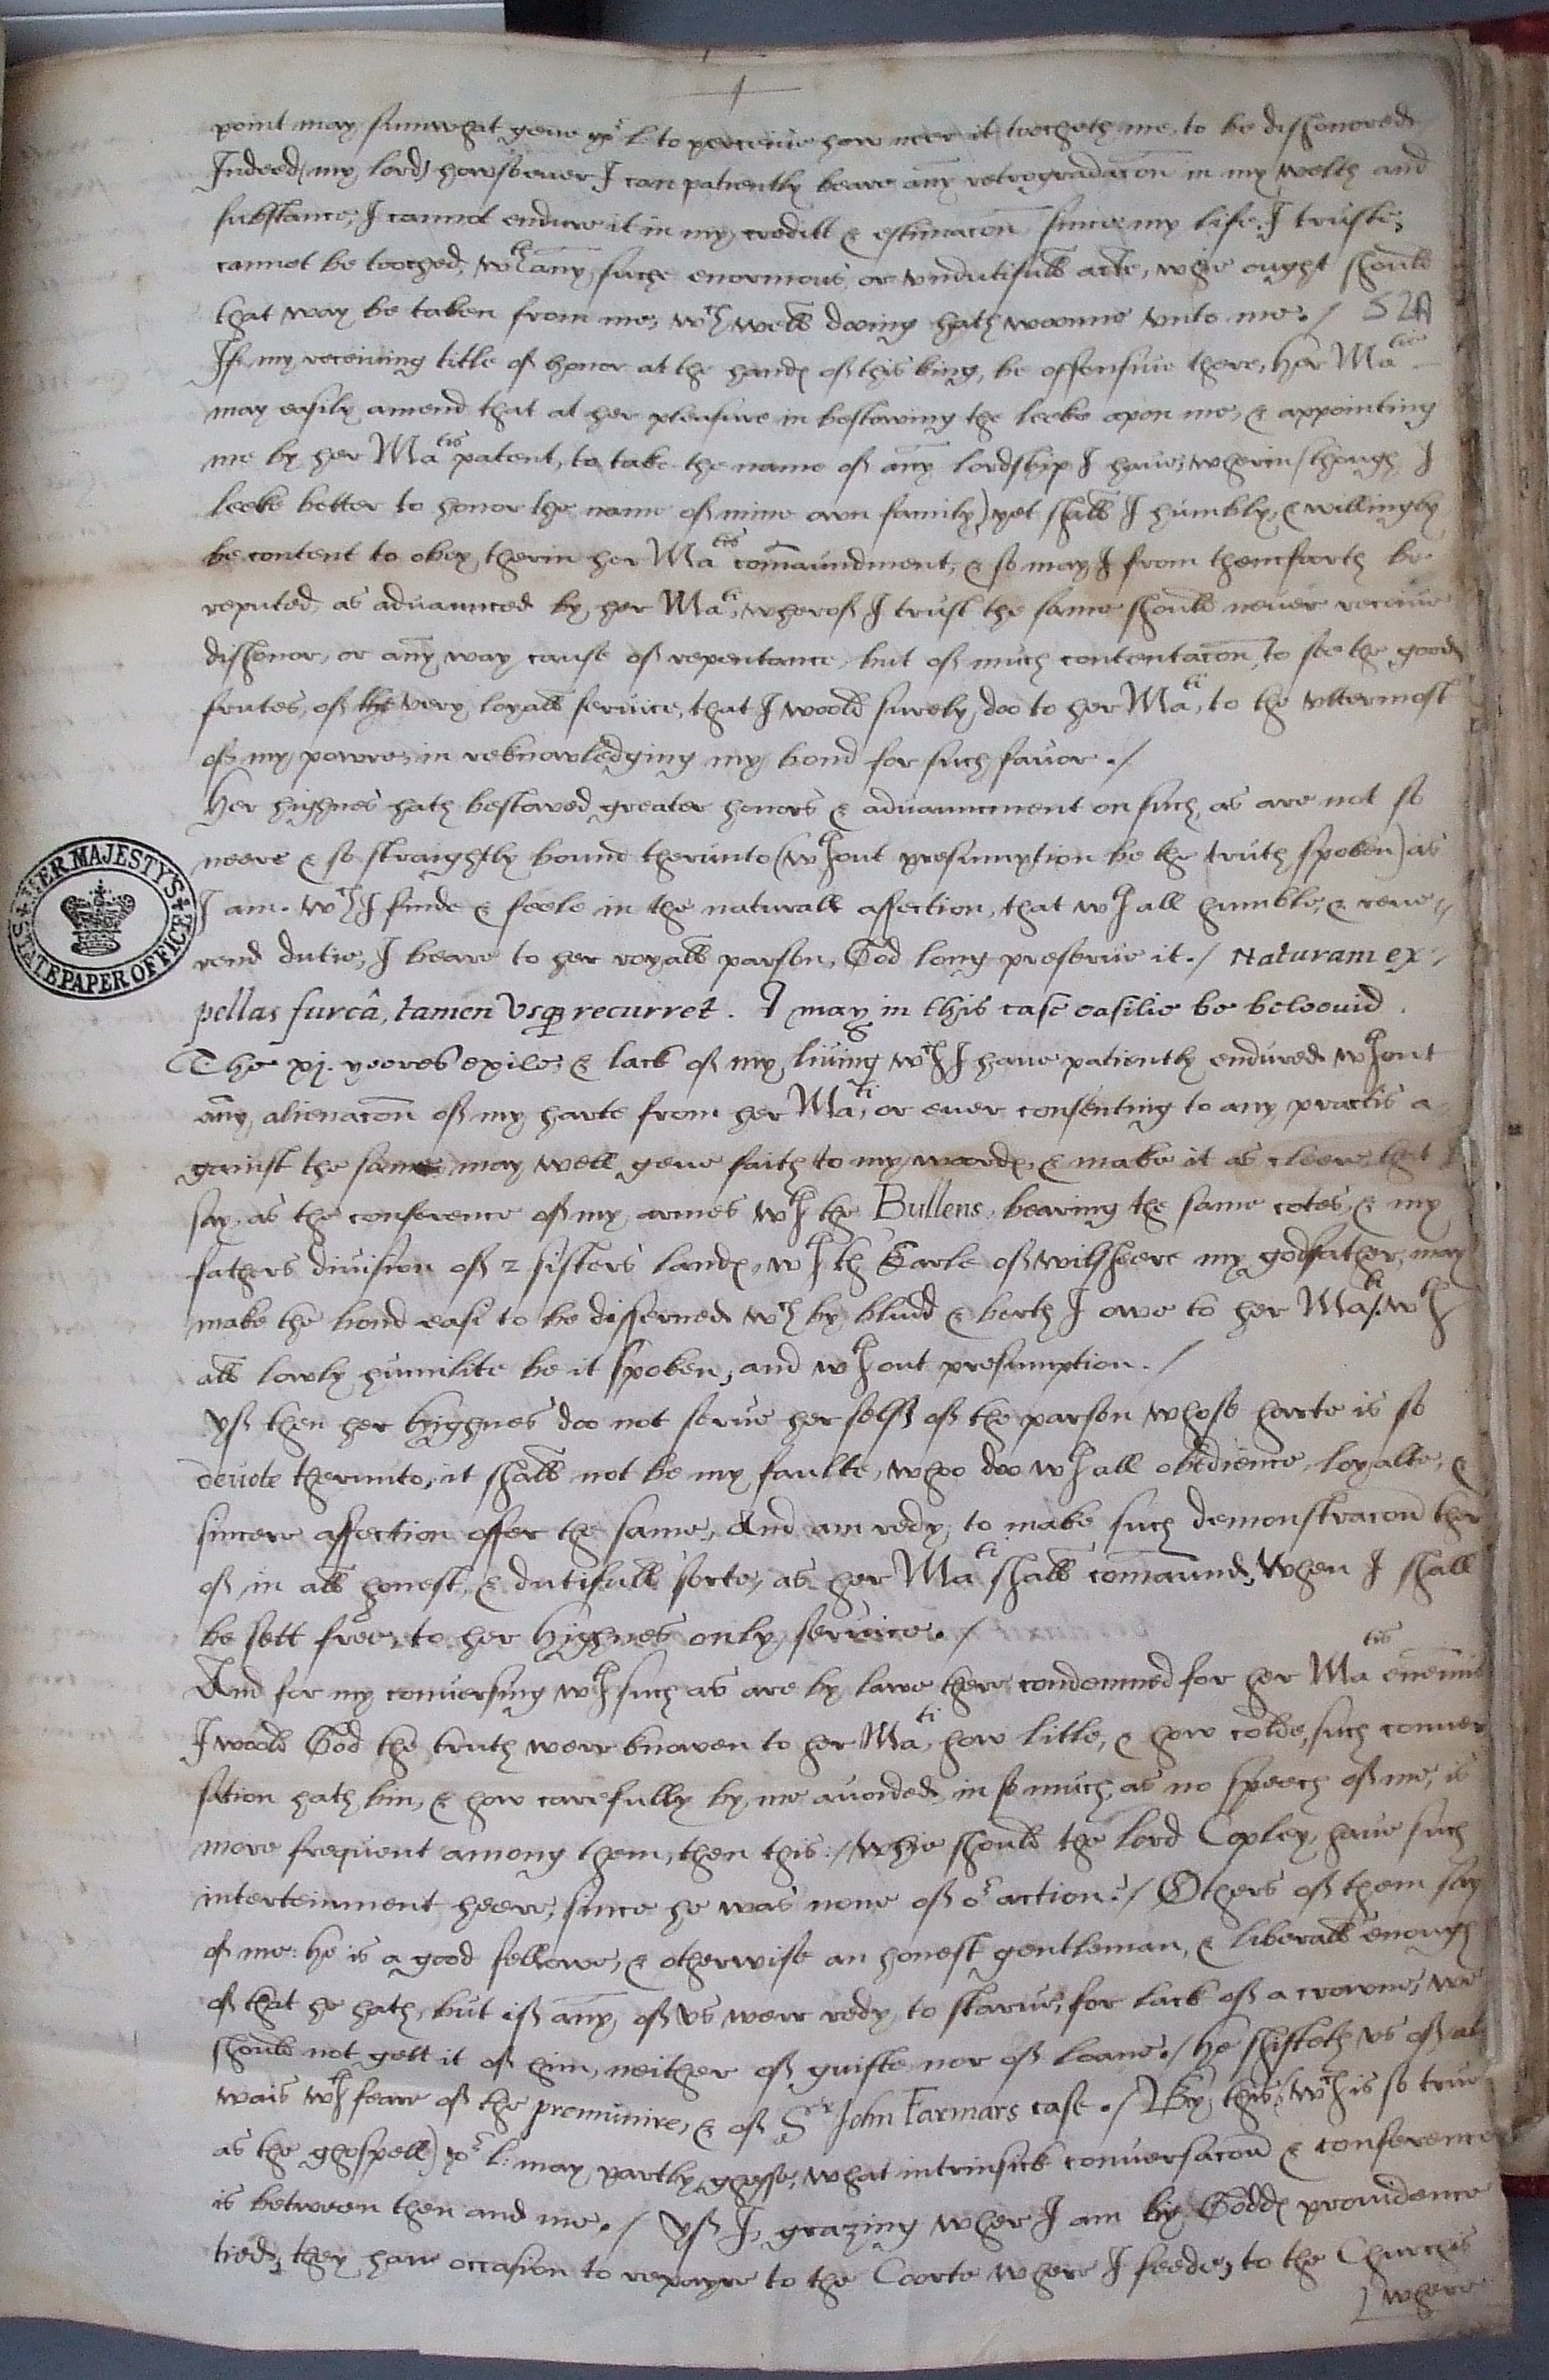 point may sumwhat geve yor L to perceive how neer it toocheth me, to be dishonored
Indeed (my lord) howsoever I can patiently beare any retrogradacon in my welth and
substance, I cannot endure it in my creditt & estimacon since my life, I truste,
cannot be tooched, wth any suche enormous or undutifull acte, whie ought should
that way be taken from me, wch well dooing hath woonne unto me. / 52A
If my receiving title of honor at the hands of this king, be offensive there, her Matie
may easily amend that at her pleasure in bestowing the leeke upon me, & appointing
me by her Maties patent, to take the name of any lordship I have, wherin (though I
leeke better to honor the name of mine own family) yet shall I humbly, & willingly
be content to obey therin her Maties commaundment, & so may I from thencfoorth be
reputed, as advaunced by her Matie, wherof I trust the same should never receive
dishonor, or any way cause of repentance, but of much contentacon, to see the good
frutes, of the very loyall service, that I woold surely doo to her Matie, to the uttermost
of my powre, in reknowledging my bond for such favor. /
Her highnes hath bestowed greater honors & advauncment on such, as are not so
neere & so straightly bound therunto (wthout presumption be the truth spoken) as
I am. wch I finde & feele in the naturall affection, that wth all humble, & reve=
rend dutie, I beare to her royall parson, God long preserve it. / Naturam ex=
pellas furcâ, tamen usq recurret. I may in this case easilie be beleevid.
The xj. yeeres exile, & lack of my living wch I have patiently endured wthout
any alienacon of my harte from her Matie, or ever consenting to any practis a=
gainst the same may well geve faith to my woords, & make it as cleere that I
say, as the conference of my armes wth the Bullens, bearing the same cotes, & my
fathers division of 2 sisters lands, wth th Earle of wilsheere my godfather, may
make the bond easi to be disserned wch by blud & berth I owe to her Matie. wth
all lowly humilite be it spoken, and wthout presumption. /
Yf then her highnes doo not serve her self of the parson whose harte is so
devote therunto, it shall not be my faulte, whoo doo wth all obedience, loyalte, &
sincere affection offer the same, And am redy to make such demonstracon ther
of in all honest, & dutifull sorte, as her Matie shall commaund, when I shall
be sett free, to her highnes only service. /
And for my conversing wth such as are by lawe there condemned for her Maties enemies
I woold God the truth were knowen to her Matie, how litle, & how colde, such conver
sation hath bin, & how carefully by me avoided, in so much, as no speech of me, is
more frequent among them, then this: / Whie should the lord Copley, have such
interteinment heere, since he was none of or action? / Others of them say
of me: he is a good fellowe, & otherwise an honest gentleman, & liberall enough
of that he hath, but if any of us were redy to starve, for lack of a crowne, we
should not gett it of him, neither of guifte nor of loane. / he shifteth us of al
wais wth feare of the premunire, & of Sr John Farmars case. / By this (wch is so true
as the ghospell) yor L: may partly ghesse, what intrinsick conversacon & conference
is between them and me. / Yf I, grazing wher I am by Godds providence
tied, they have occasion to repayre to the Coorte where I feede, to the Churchis
where
HER MAJESTY'S STATE PAPER OFFICE